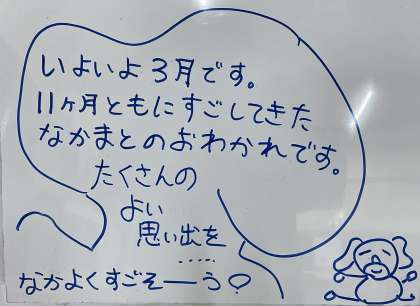 いよいよ3月です。
11ヶ月ともにすごしてきた
なかまとのおわかれです。
たくさんの
よい
思い出を
.....
なかよくすごそーう?